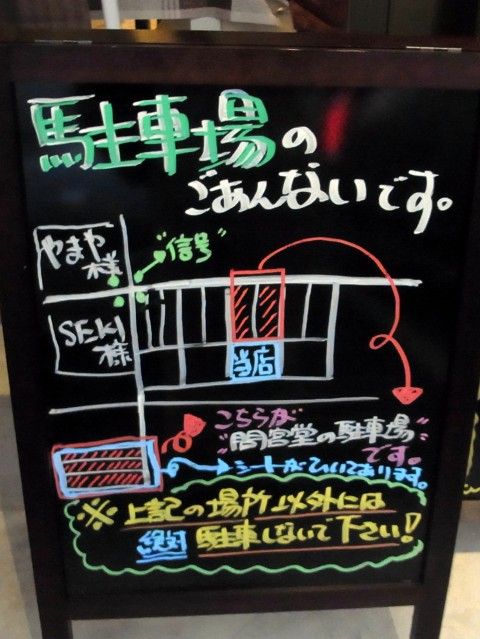 駐車場の
ごあんないです。
やまや様
"信号"
SEKI様
当店
こちらが
"間宮堂の駐車場"
です。
シートがひいてあります。
※上記の場所以外には
絶対駐車しないで下さい!